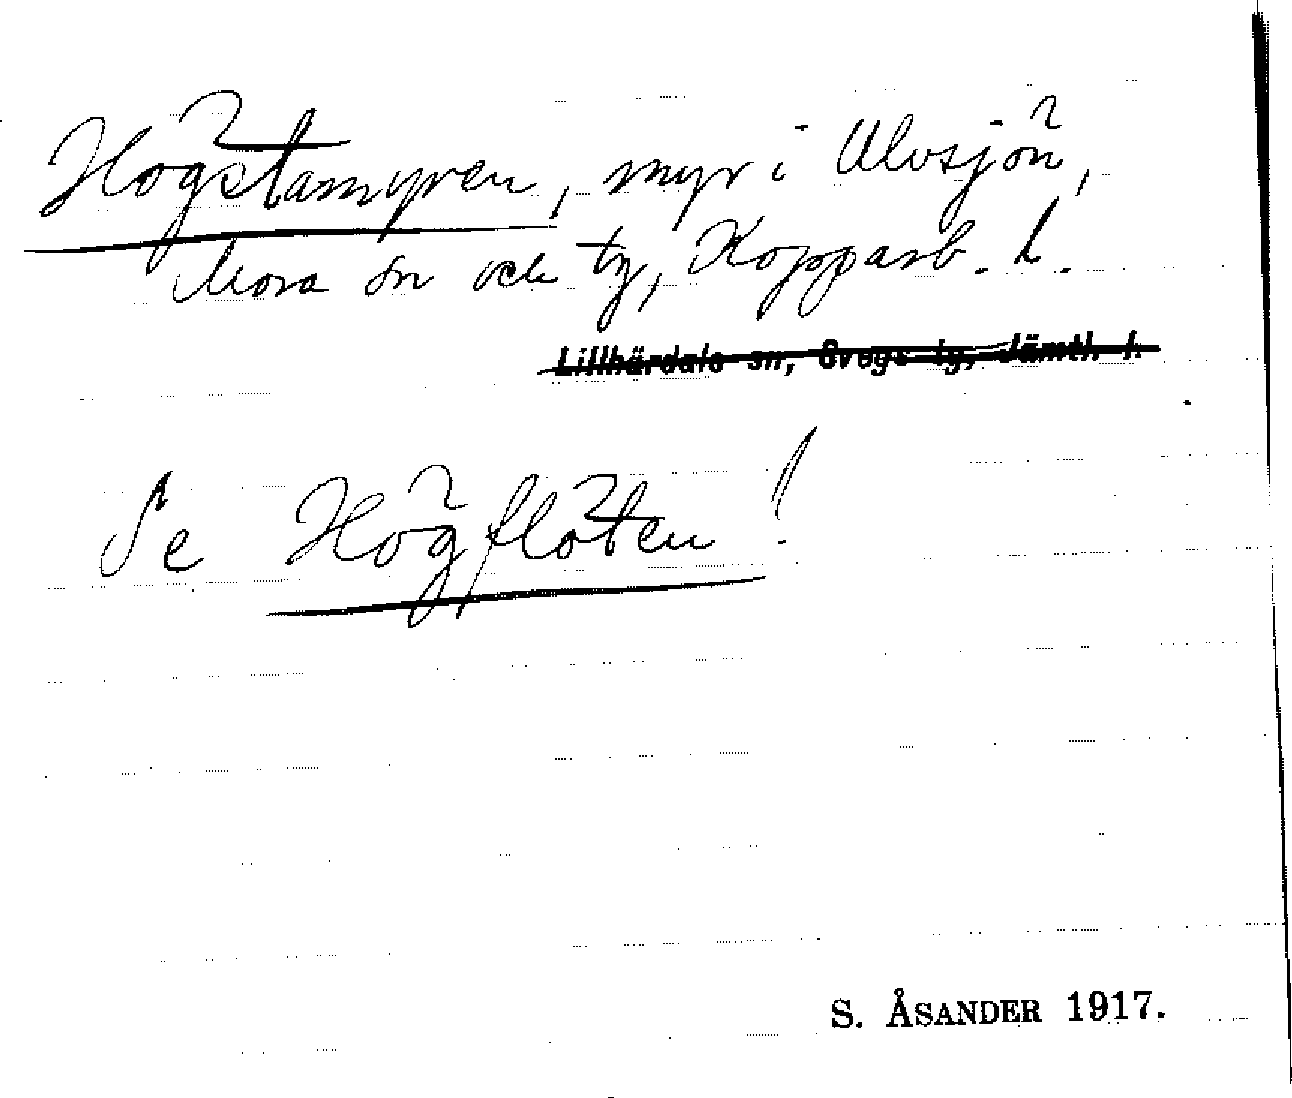 Högstamyren, myr i Ulvsjön,
Mora sn och tg, Kopparb. l.
Lillhärdals sn, Svegs tg, Jämtl. l.
Se Högflöten!
S. ÅSANDER 1917.